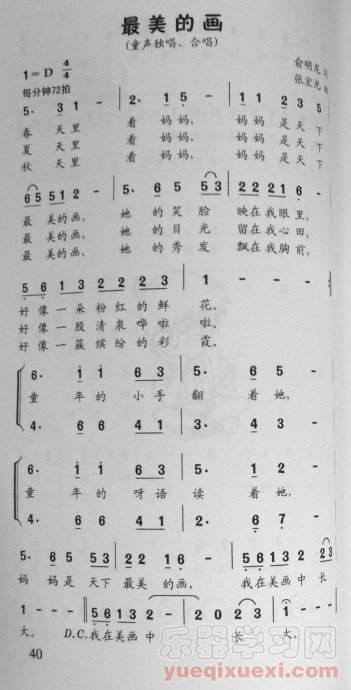 最美的画
(童声独唱、合唱)
1=D 4/4
俞明龙 词
每分钟72拍
张宏光 曲
5· 3 1 - | 2· 1 5 - | 3· 2 1 2 3
春天里 看妈妈, 妈妈是天下
夏天里 看妈妈, 妈妈是天下
秋天里 看妈妈, 妈妈是天下
65 5512 - | 5· 6 5 53 | 2221 6 -
最美的画, 她的笑脸 映在我眼里,
最美的画, 她的目光 留在我心田,
最美的画, 她的秀发 飘在我胸前,
5 6 1 3 2 2 2 3 | 1 -
好像一朵粉红的鲜花。
好像一股清泉哗啦啦。
好像一簇缤纷的彩霞。
6· 1 1 6 3 | 5· 3 5 -
童年的小手翻着她,
4· 6 6 4 1 | 3· 3 -
6· 1 1 6 3 | 5· 1 2 -
童年的呀语读着她,
4· 6 6 4 1 | 2· 6 7 -
5· 6 5 53 | 2 2 1 6 - | 5 6 1 3 2 23
妈妈是天下最美的画, 我在美画中长
1 - - - | 5 6 1 3 2 - | 2 0 2 0 23 | 1 - - -
大。 D.C.我在美画中 长 大。
40
乐器学习网
yueqixuexi.com